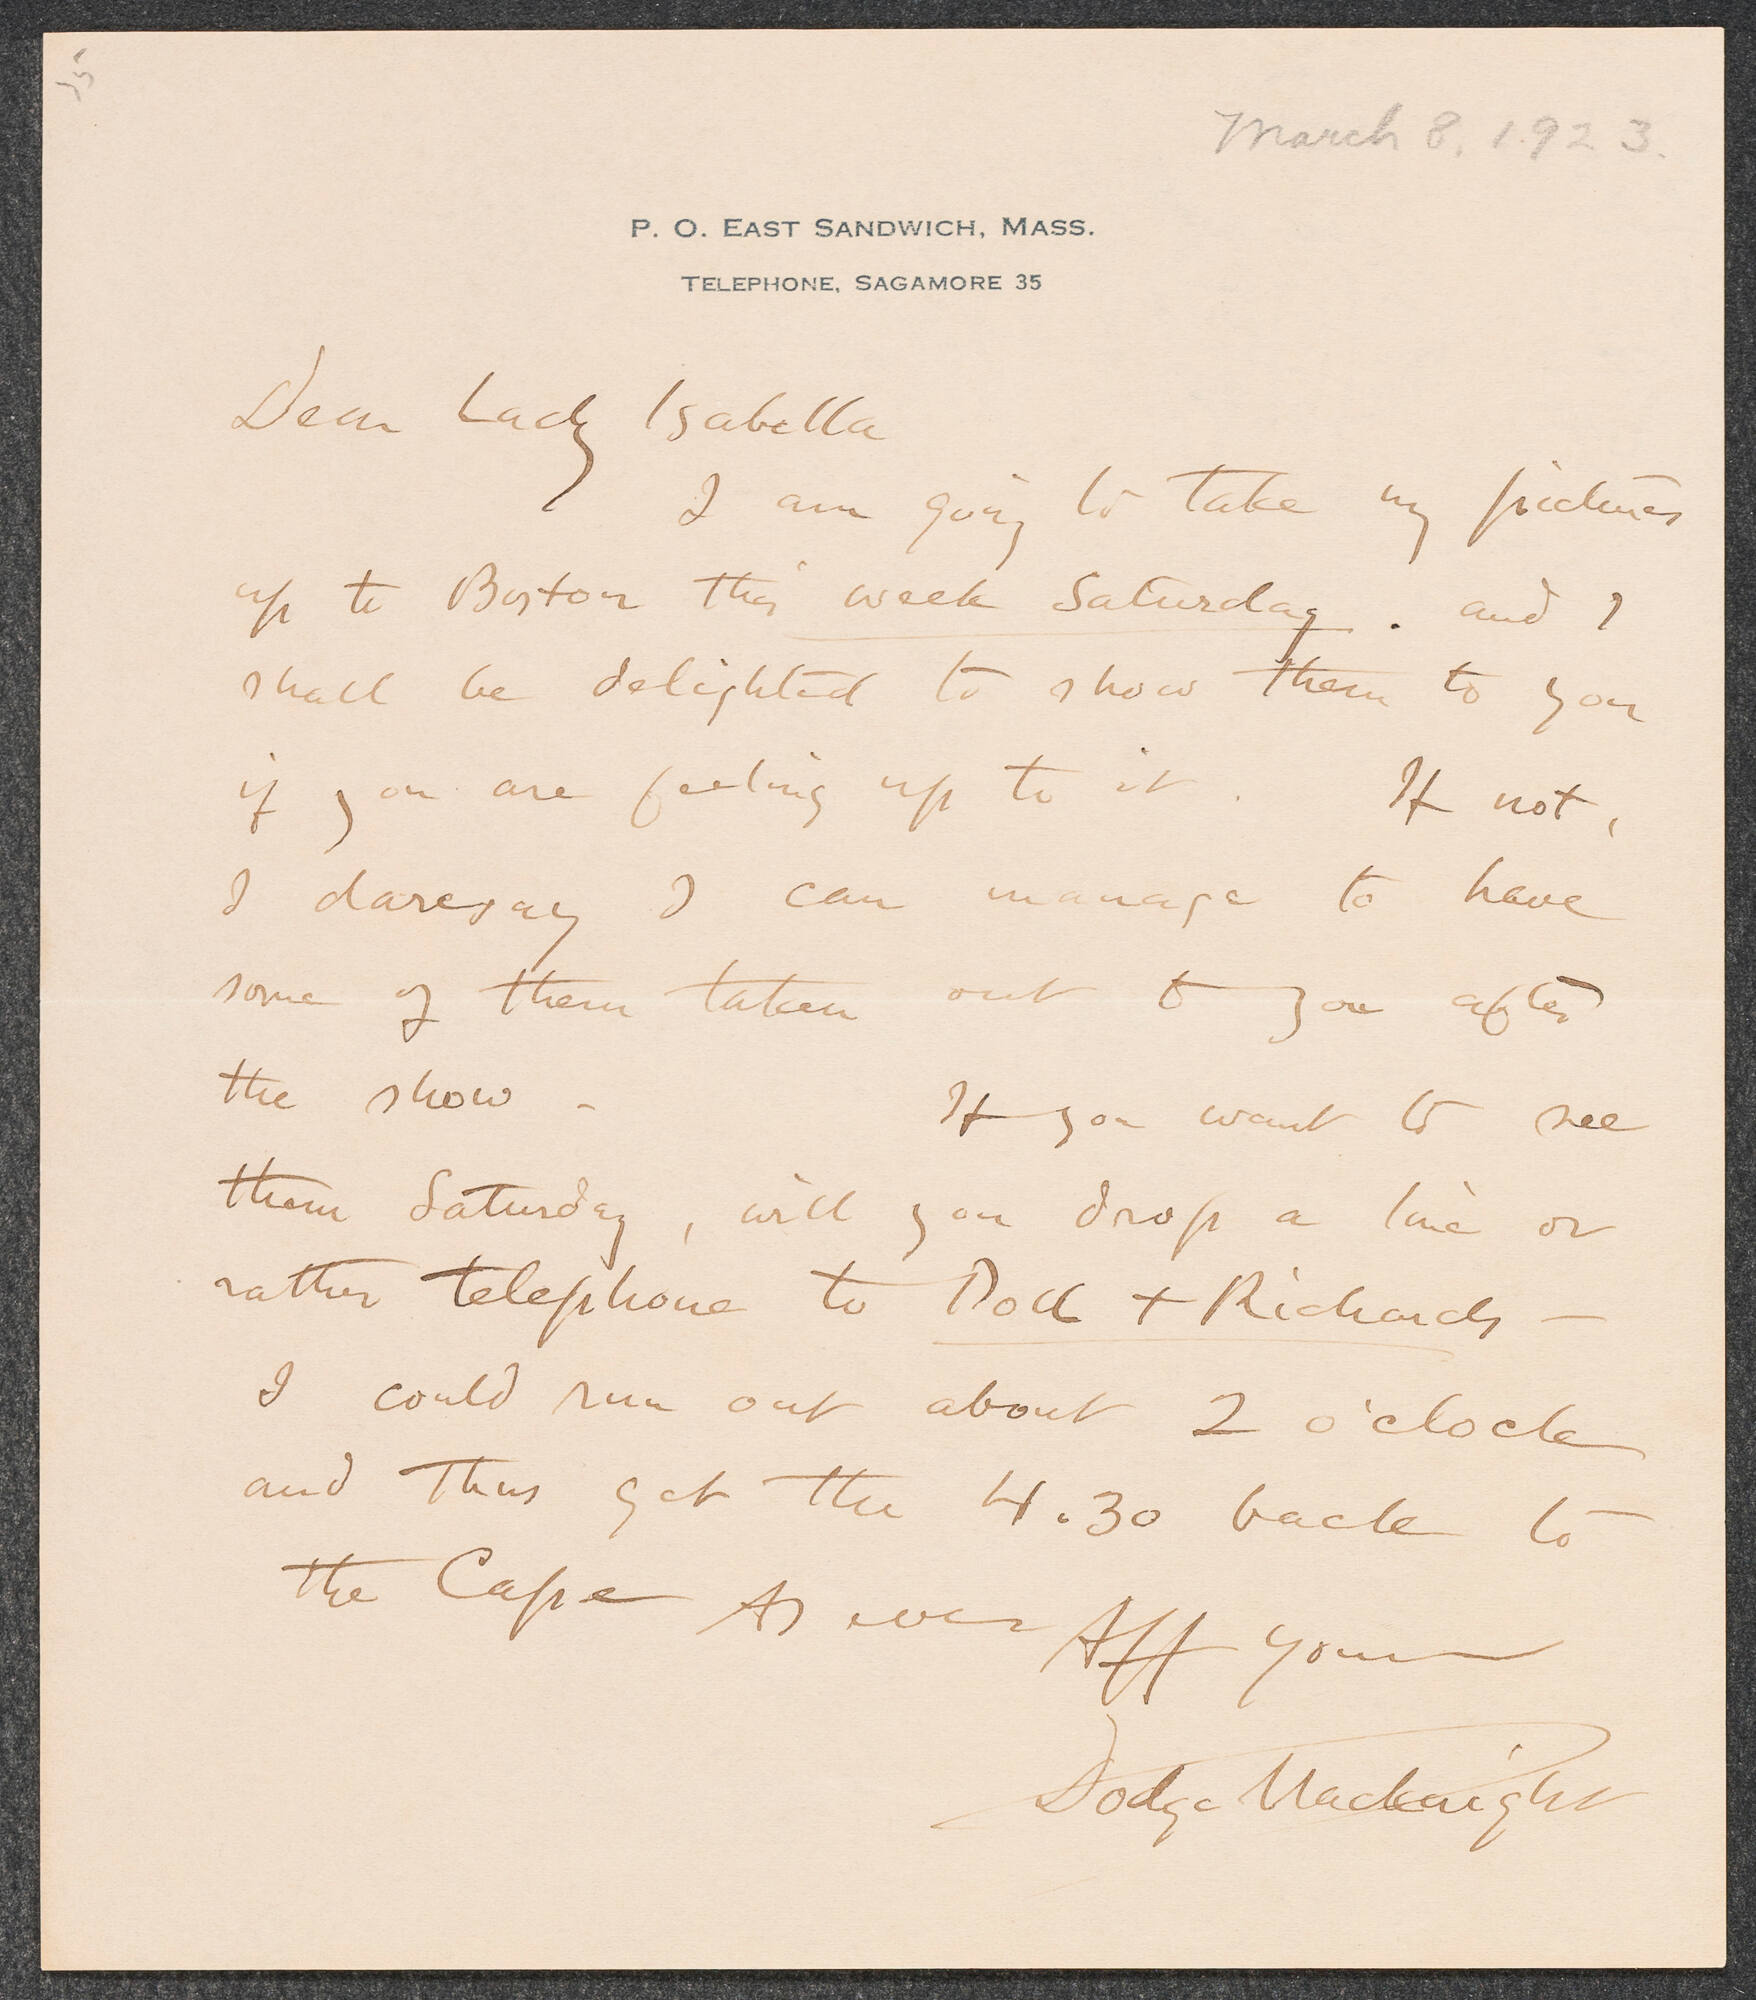 March 8, 1923.
P. O. EAST SANDWICH, MASS.
TELEPHONE, SAGAMORE 35
Dear Lady Isabella
I am going to take my pictures
up to Boston this week Saturday. and I
shall be delighted to show them to you
if you are feeling up to it. If not,
I daresay I can manage to have
some of them taken out to you after
the show - If you want to see
them Saturday, will you drop a line or
rather telephone to Doll + Richards —
I could run out about 2 o'clock
and thus get the 4.30 back to
the Cape As ever Aff yours
Dodge Macknight